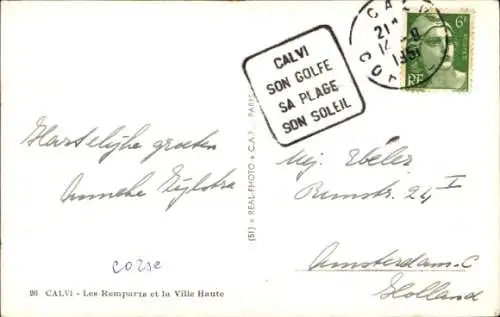 CALVI
SON GOLFE
SA PLAGE
SON SOLEIL
CAL
21H
14 - 8
1951
CO
6F
RF
Hartelijke groeten
Anneke Zijlstra
Mej. Ebeler
Bumstr. 24 I
Amsterdam-C
Holland
corse
26 CALVI - Les Remparts et la Ville Haute
(51) « REAL-PHOTO » C.A.P. - PARIS